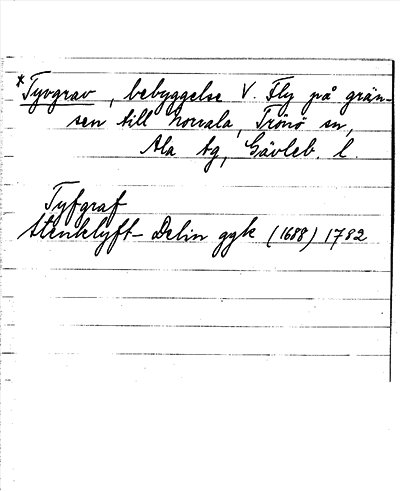 *Tyvgrav, bebyggelse V. Fly på grän-
sen till Norrala, Trönö sn,
Ala tg, Gävleb. l.
Tyfgraf
Stenklyft- Delin ggk (1688) 1782